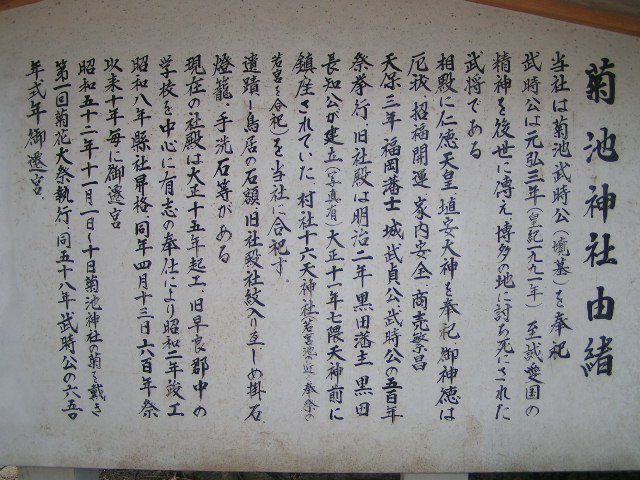 菊池神社由緒
当社は菊池武時公（墳墓）を奉祀
武時公は元弘三年（皇紀一九九一年）至誠愛国の
精神を後世に傳え博多の地に討ち死にされた
武将である
相殿に仁徳天皇 埴安大神を奉祀 御神徳は
厄祓 招福開運 家内安全 商売繁昌
天保三年 福岡藩士 城武貞公 武時公の五百年
祭挙行 旧社殿は明治二年 黒田藩主 黒田
長知公が建立（写真有）大正十一年七隈天神前に
鎮座されていた 村社十六天神社（若宮 近 奉祭の
若宮を合祀）を当社に合祀す。
遺蹟－鳥居の石額 旧社殿社紋入り 掛石
燈籠 手洗石等がある
現在の社殿は大正十五年起工、旧早良郡中の
学校を中心に有志の奉仕により昭和二年竣工
昭和八年縣社昇格同年四月十三日六百年祭
以来十年毎に御遷宮
昭和五十二年十一月一日～十日菊池神社の菊を戴き
第一回菊花大祭執行、同五十八年武時公の六五〇
年式年御遷宮